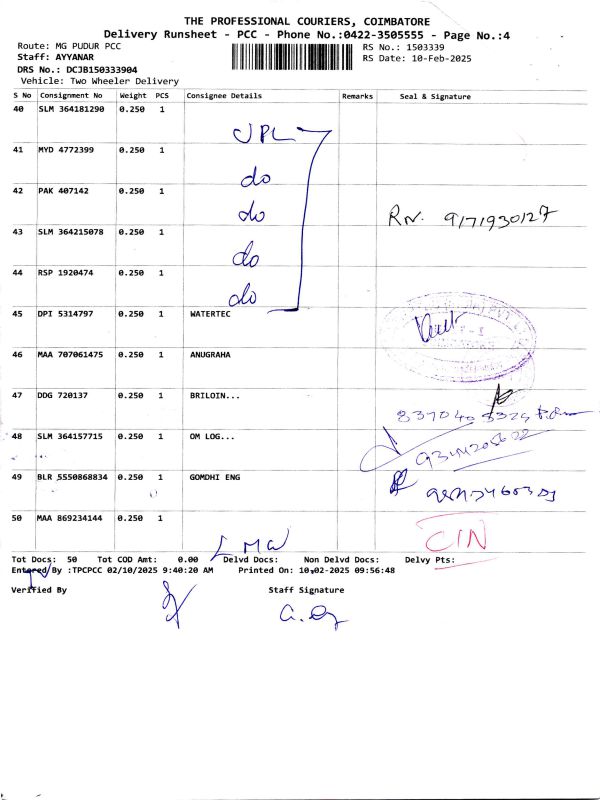 THE PROFESSIONAL COURIERS, COIMBATORE
Delivery Runsheet - PCC - Phone No.:0422-3505555 - Page No.:4
Route: MG PUDUR PCC
RS No.: 1503339
Staff: AYYANAR
RS Date: 10-Feb-2025
DRS No.: DCJB150333904
Vehicle: Two Wheeler Delivery
S No Consignment No Weight PCS Consignee Details Remarks Seal & Signature
40 SLM 364181290 0.250 1
UPL
41 MYD 4772399 0.250 1
do
42 PAK 407142 0.250 1
do
RN. 9171930127
43 SLM 364215078 0.250 1
do
44 RSP 1920474 0.250 1
do
45 DPI 5314797 0.250 1 WATERTEC
46 MAA 707061475 0.250 1 ANUGRAHA
47 DDG 720137 0.250 1 BRILOIN...
48 SLM 364157715 0.250 1 OM LOG...
49 BLR 5550868834 0.250 1 GOMDHI ENG
50 MAA 869234144 0.250 1
LMW
CIN
Tot Docs: 50 Tot COD Amt: 0.00 Delvd Docs: Non Delvd Docs: Delvy Pts:
Entered By :TPCPCC 02/10/2025 9:40:20 AM Printed On: 10-02-2025 09:56:48
Verified By Staff Signature